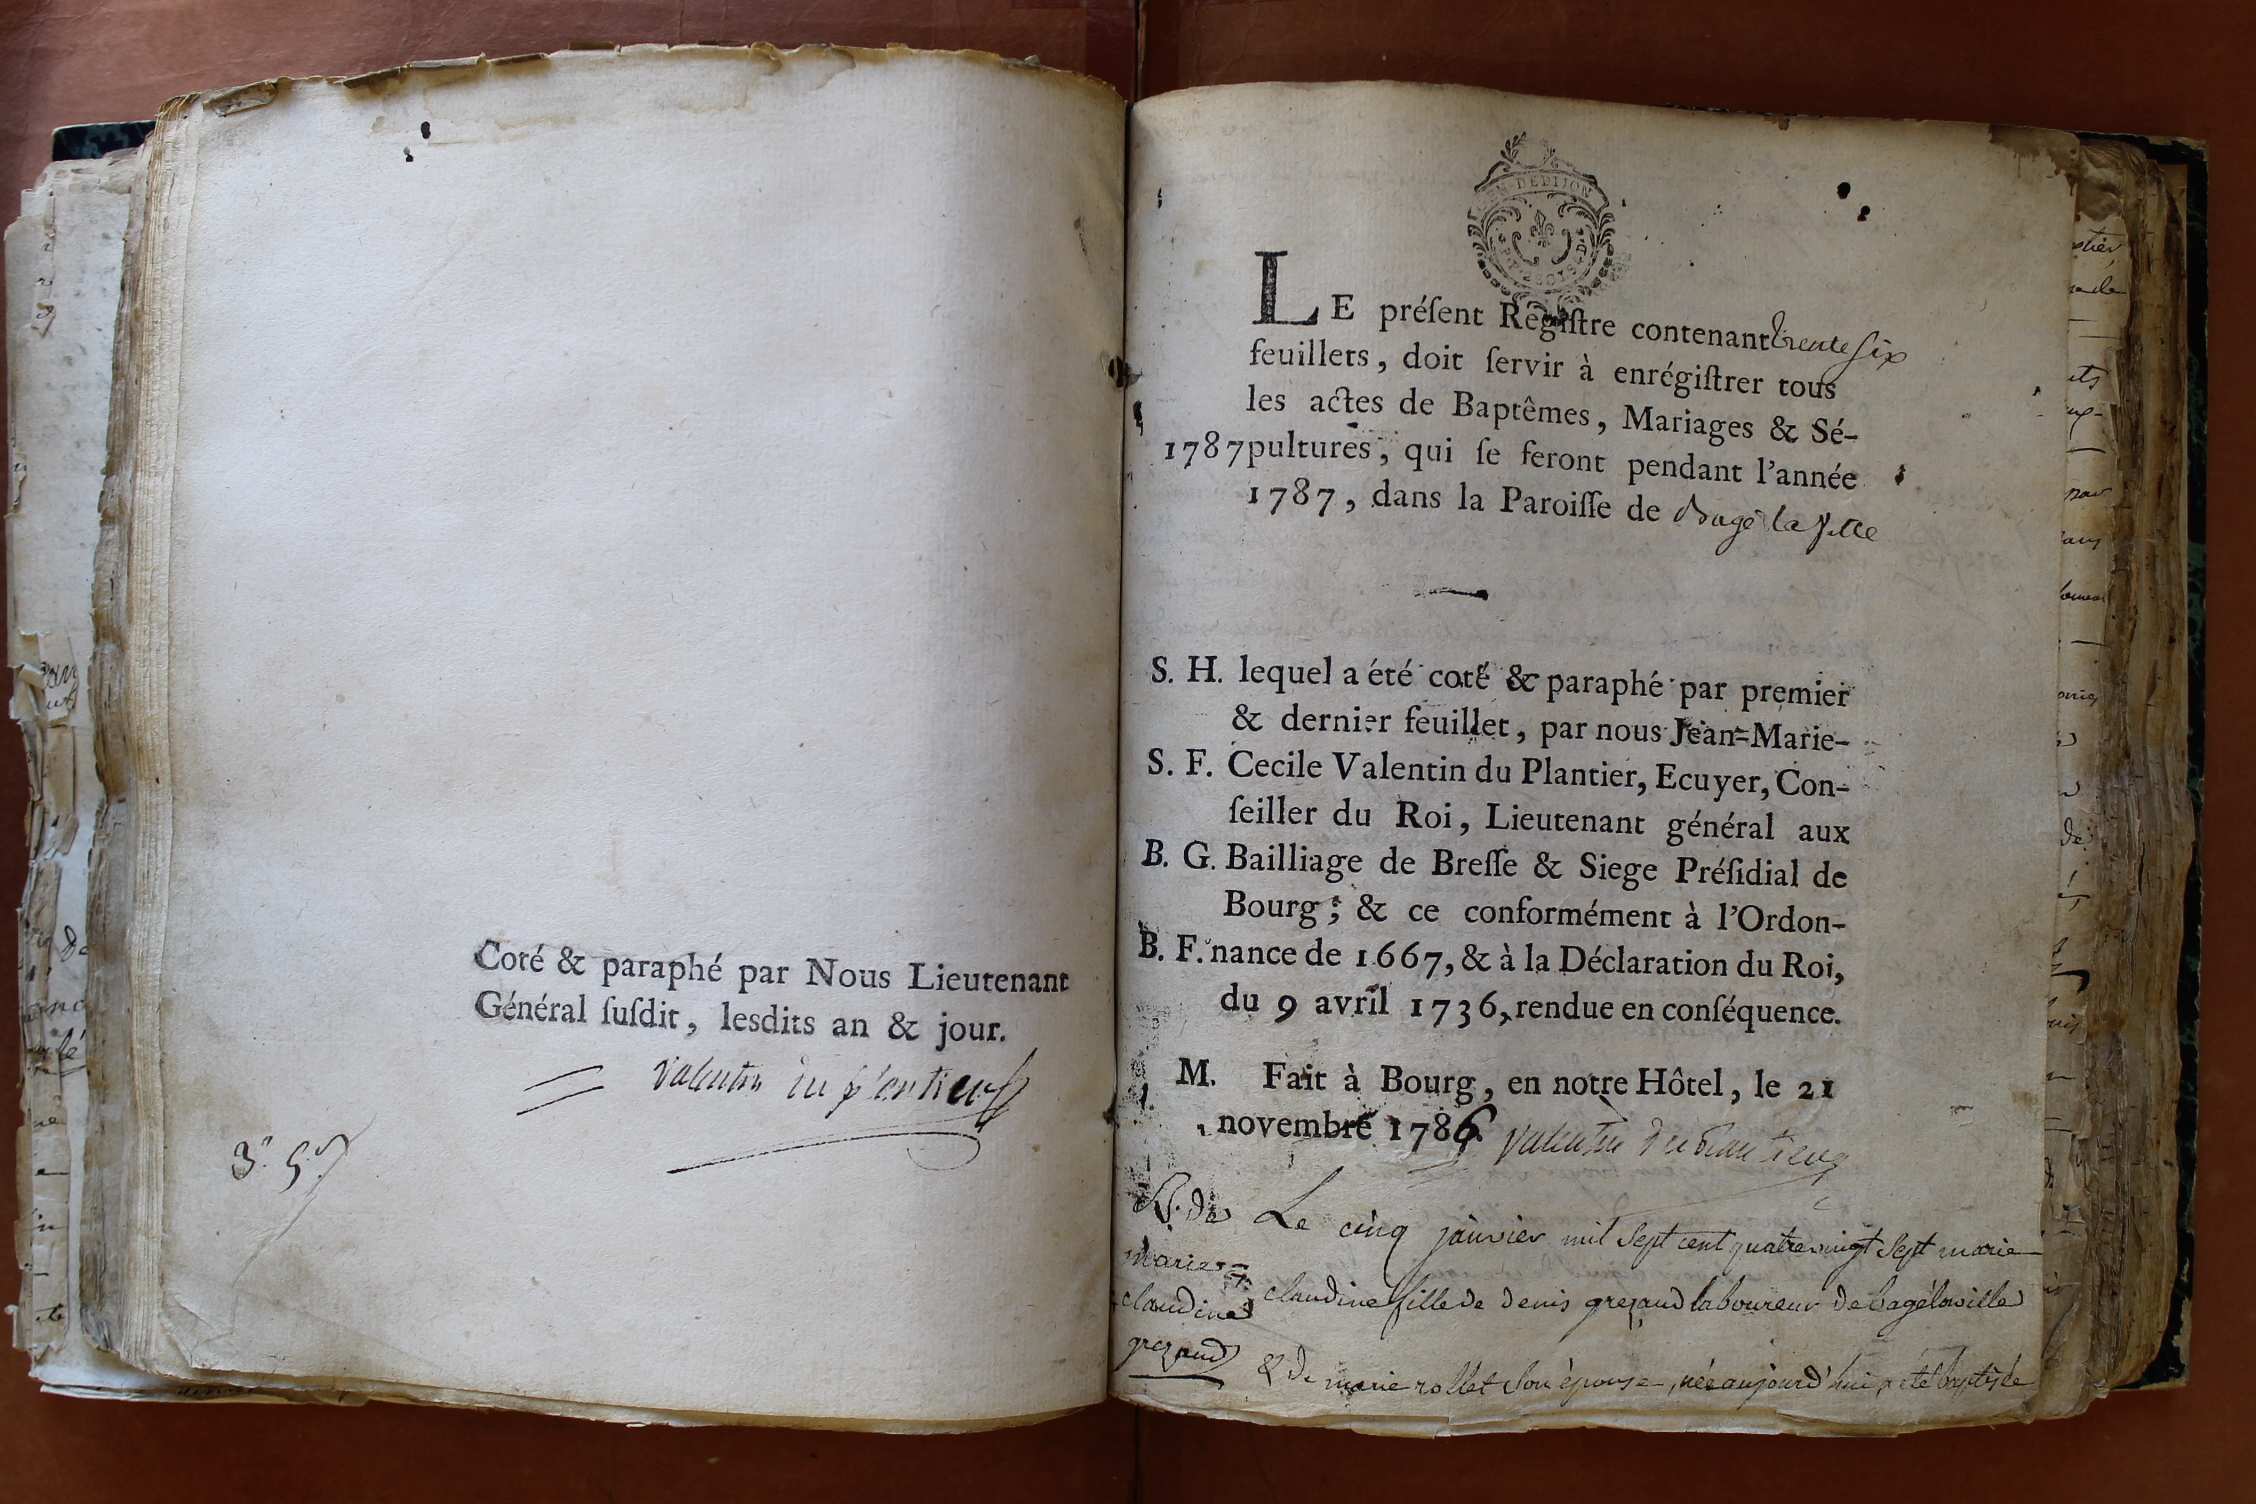 Coté & paraphé par Nous Lieutenant
Général ſuſdit, lesdits an & jour.
Valentin du plantier
GEN. DE DIJON
LE préſent Regiſtre contenant trente six
feuillets, doit ſervir à enrégiſtrer tous
les actes de Baptêmes, Mariages & Sé-
1787 pultures, qui ſe feront pendant l'année
1787, dans la Paroiſſe de Bagé la Ville
S. H. lequel a été coté & paraphé par premier
& dernier feuillet, par nous Jean=Marie-
S. F. Cecile Valentin du Plantier, Ecuyer, Con-
ſeiller du Roi, Lieutenant général aux
B. G. Bailliage de Breſſe & Siege Préſidial de
Bourg; & ce conformément à l'Ordon-
B. F. nance de 1667, & à la Déclaration du Roi,
du 9 avril 1736, rendue en conſéquence.
M. Fait à Bourg, en notre Hôtel, le 21
novembre 1786. Valentin du plantier
B. de
marie
claudine
grezaud
Le cinq janvier mil sept cent quatre vingt sept marie
claudine fille de denis grezaud laboureur de bagélaville
& de marie rollet son épouse, née aujourd'hui, a été baptisée